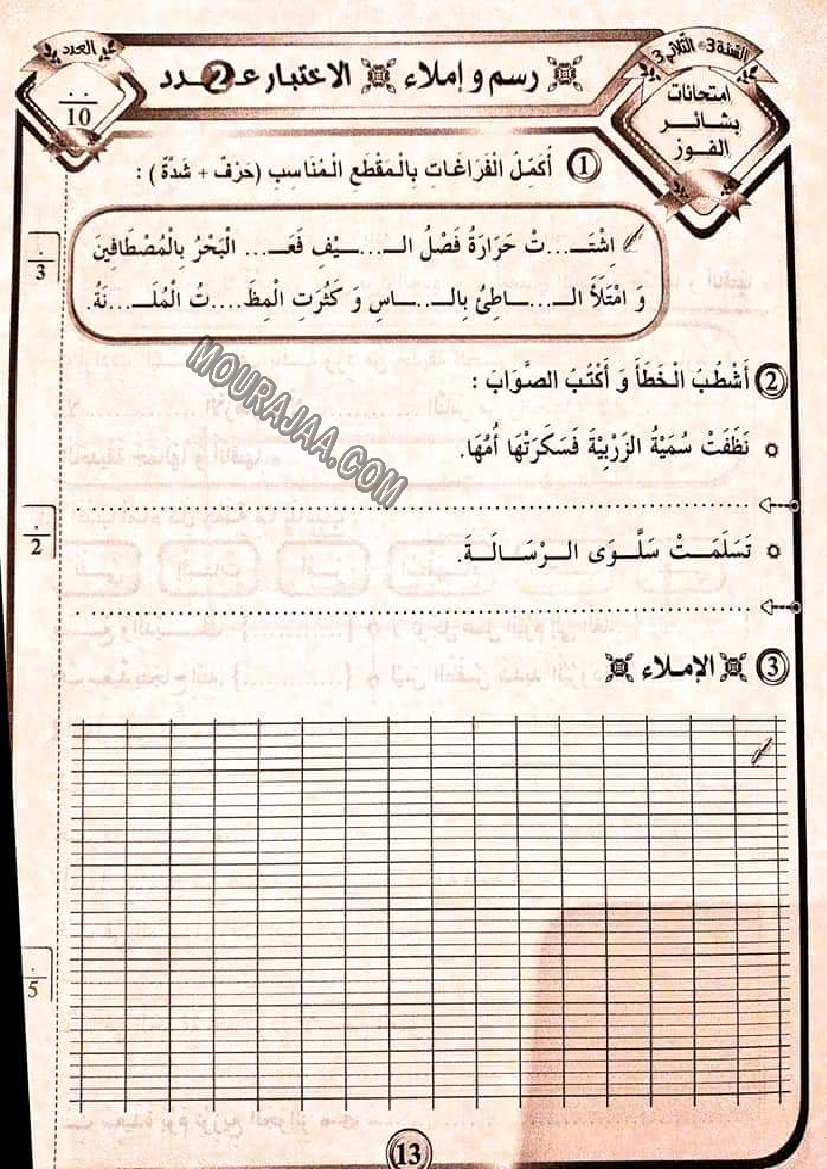 السّنة 3 الثّلاثي 3
امتحانات
بشائر
الفوز
رسم و إملاء الاختبار عـ2ـدد
العدد
. .
10
1 أُكَمِّلُ الْفَرَاغَاتِ بِالْمَقْطَعِ الْمُنَاسِبِ (حَرْفٌ + شَدَّة) :
اشْتَـ...تْ حَرَارَةُ فَصْلُ الـ...ـيْفِ فَعَـ... الْبَحْرُ بِالْمُصْطَافِينَ
وَ امْتَلَأَ الـ...ـاطِئُ بِالـ...ـاسِ وَ كَثُرَتِ الْمِظَـ...تُ الْمُلَـ...نَةُ.
.
3
2 أَشْطُبُ الْخَطَأَ وَ أَكْتُبُ الصَّوَابَ :
نَظَفَتْ سُمَيَةُ الزَرْبِيَّةَ فَسَكَرَتْهَا أُمُّهَا.
تَسَلَمَـتْ سَلَّـوَى الـرْسَـالَـةَ.
.
2
3 الإملاء
.
5
13
MOURAJAA.COM